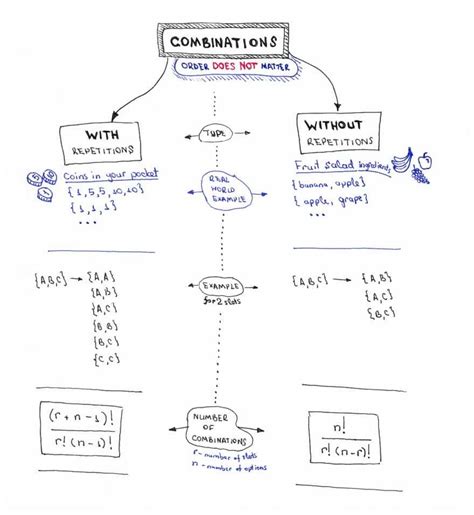 COMBINATIONS
ORDER DOES NOT MATTER
WITH
REPETITIONS
TYPE
WITHOUT
REPETITIONS
Coins in your pocket
{1,5,5,10,10}
{1,1,1}
...
REAL
WORLD
EXAMPLE
Fruit salad ingredients
{banana, apple}
{apple, grape}
...
{A,B,C} → {A,A}
{A,B}
{A,C}
{B,B}
{B,C}
{C,C}
EXAMPLE
for 2 slots
{A,B,C} → {A,B}
{A,C}
{B,C}
(r + n - 1)!
r! (n-1)!
NUMBER
OF
COMBINATIONS
r - number of slots
n - number of options
n!
r! (n-r)!